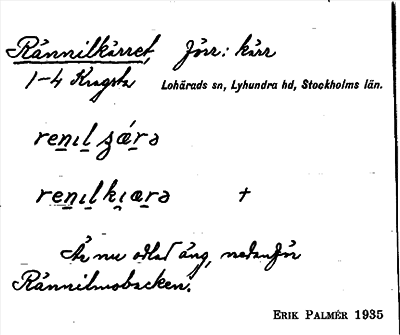 Rännilkärret, förr: kärr
1-4 Kragsta
Lohärads sn, Lyhundra hd, Stockholms län.
renıl
renılkıæra †
Är nu odlad äng, nedanför
Rännilmobacken.
ERIK PALMÉR 1935